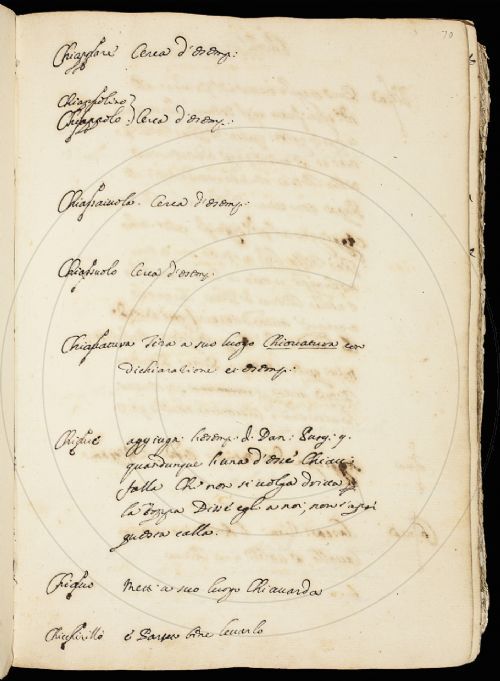 70
Chiappare Cerca d'esemp:
Chiappolino
Chiappolo Cerca d'esemp:
Cerca d'esemp:
Cerca d'esemp:
tira a suo luogo Chiovatura con
dichiaratione et esemp:
Chiave aggiunga l'esemp: d. Dan: Purg: 9.
quandunque l'una d'este Chiavi
falla Che non si volga dritta p
la toppa Diss'egli a noi, non s'apri
questa calla.
Mett: a suo luogo Chiavarda
è parso bene levarlo